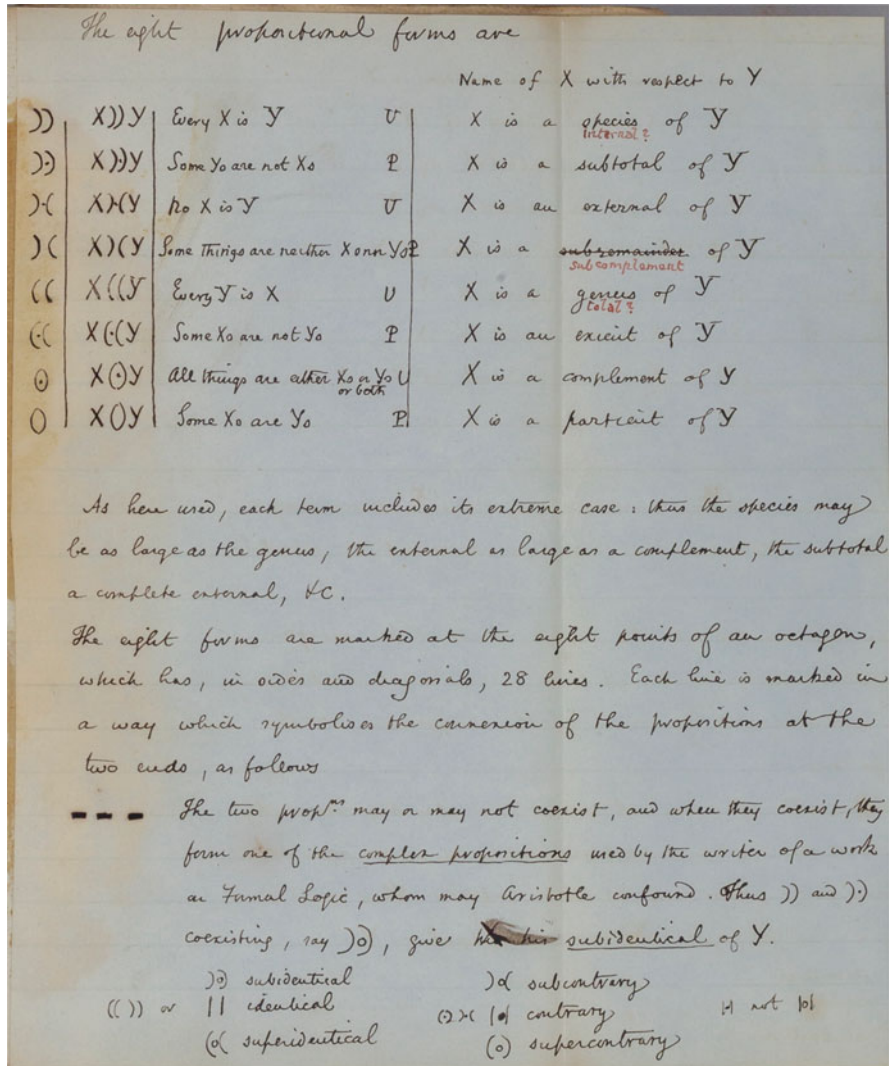 The eight propositional forms are
Name of X with respect to Y
)) X))Y Every X is Y U X is a species of Y
internal?
)·) X)·)Y Some Ys are not Xs P X is a subtotal of Y
)·( X)·(Y No X is Y U X is an external of Y
)( X)(Y Some things are neither Xs nor Ys P X is a subremainder of Y
subcomplement
(( X((Y Every Y is X U X is a genus of Y
total?
(·( X(·(Y Some Xs are not Ys P X is an exient of Y
(·) X(·)Y All things are either Xs or Ys U X is a complement of Y
or both
() X()Y Some Xs are Ys P X is a partient of Y
As here used, each term includes its extreme case: thus the species may
be as large as the genus, the external as large as a complement, the subtotal
a complete external, &c.
The eight forms are marked at the eight points of an octagon,
which has, in sides and diagonals, 28 lines. Each line is marked in
a way which symbolises the connexion of the propositions at the
two ends, as follows
--- The two propns may or may not coexist, and when they coexist, they
form one of the complex propositions used by the writer of a work
on Formal Logic, whom may Aristotle confound. Thus )) and )·)
coexisting, say )o), give his subidentical of Y.
)o) subidentical )o( subcontrary
(( )) or || identical (·) )·( |·| contrary |·| not |o|
(o( superidentical (o) supercontrary